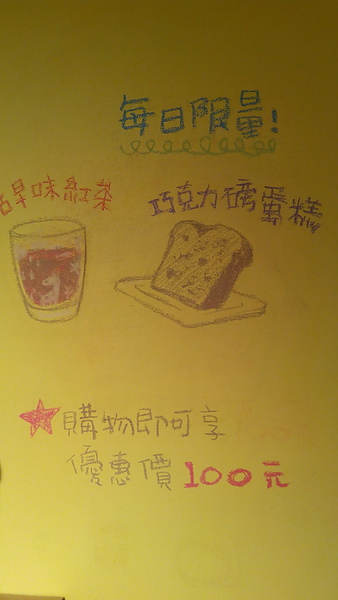 每日限量!
古早味紅茶
巧克力磅蛋糕
購物即可享
優惠價100元